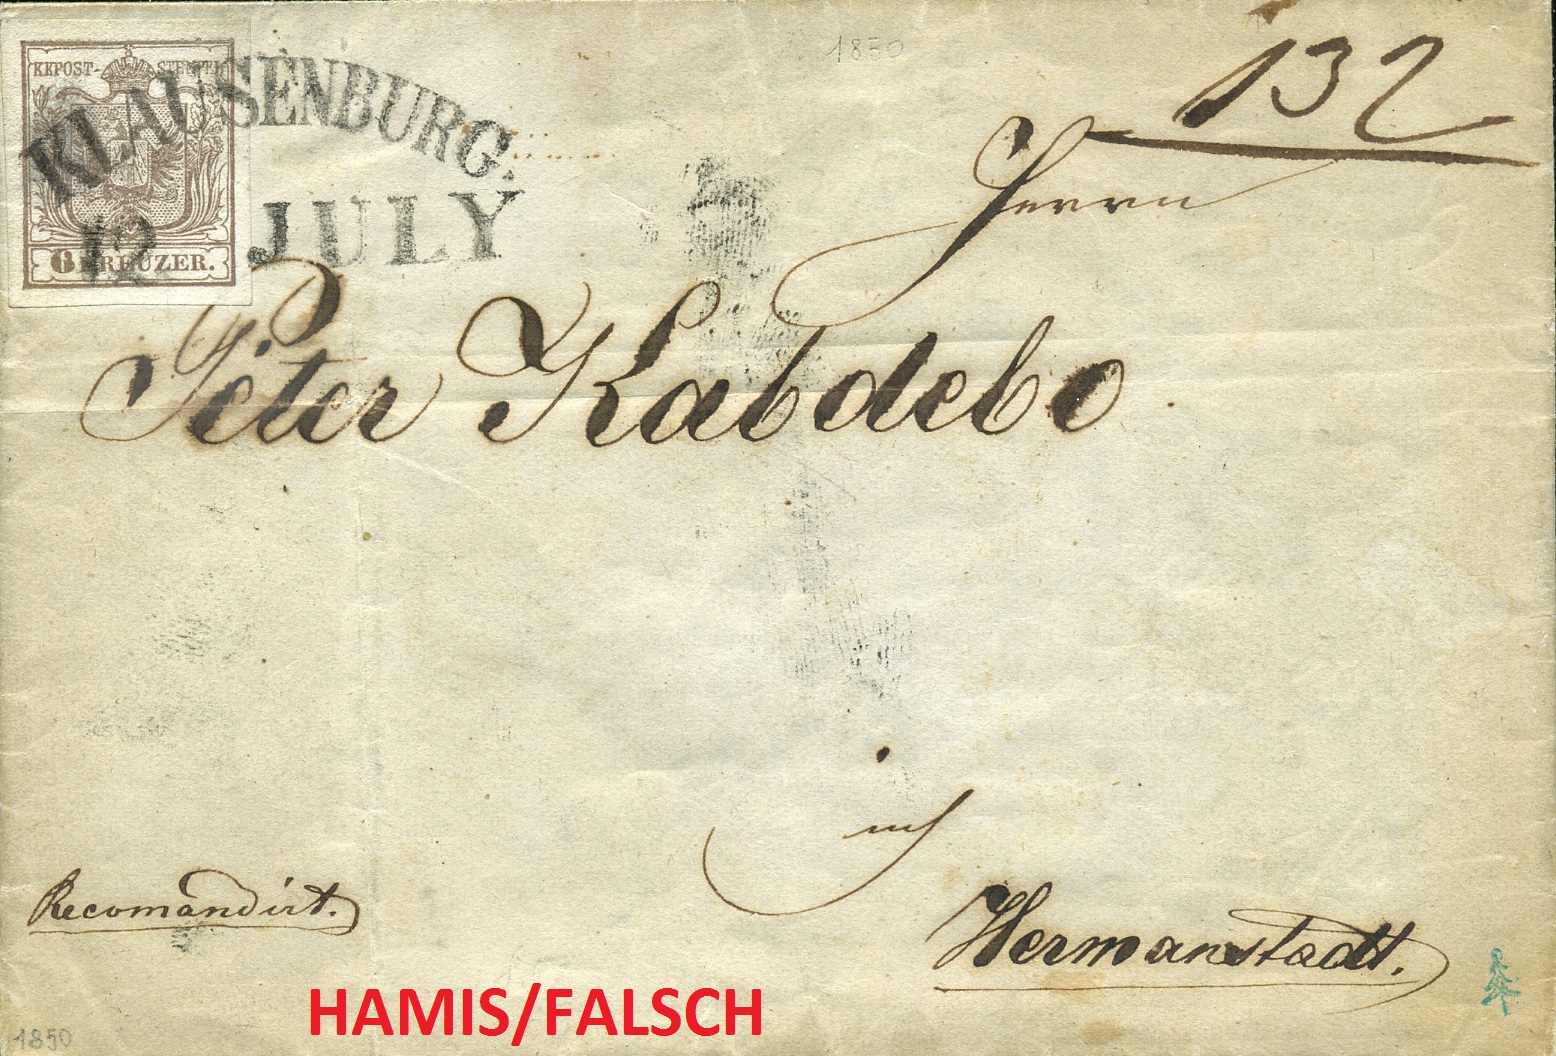 1850
132
KKPOST-STEMPEL
KLAUSENBURG.
12 JULY
6 KREUZER.
Herrn
Péter Kabdebo.
in
Hermanstadt.
Recomandirt.
HAMIS/FALSCH
1850